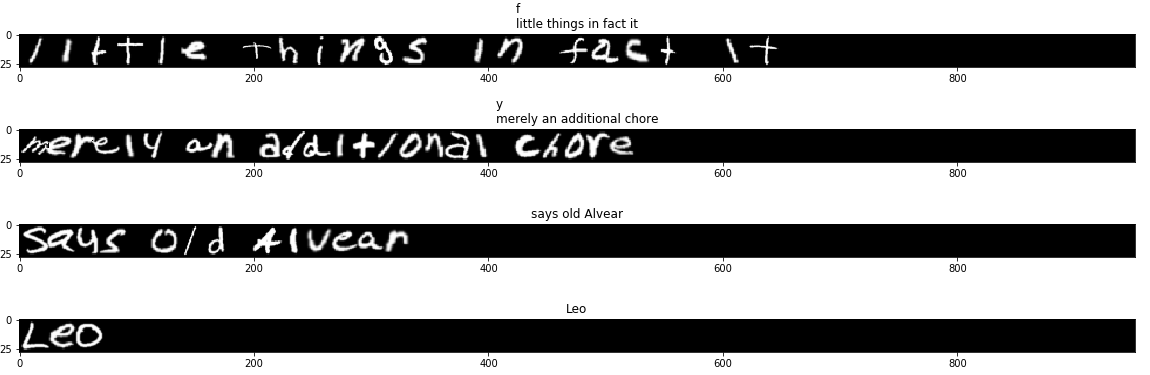 f
little things in fact it
little things in fact it
0
25
0 200 400 600 800
y
merely an additional chore
merely an additional chore
0
25
0 200 400 600 800
says old Alvear
says old Alvear
0
25
0 200 400 600 800
Leo
Leo
0
25
0 200 400 600 800